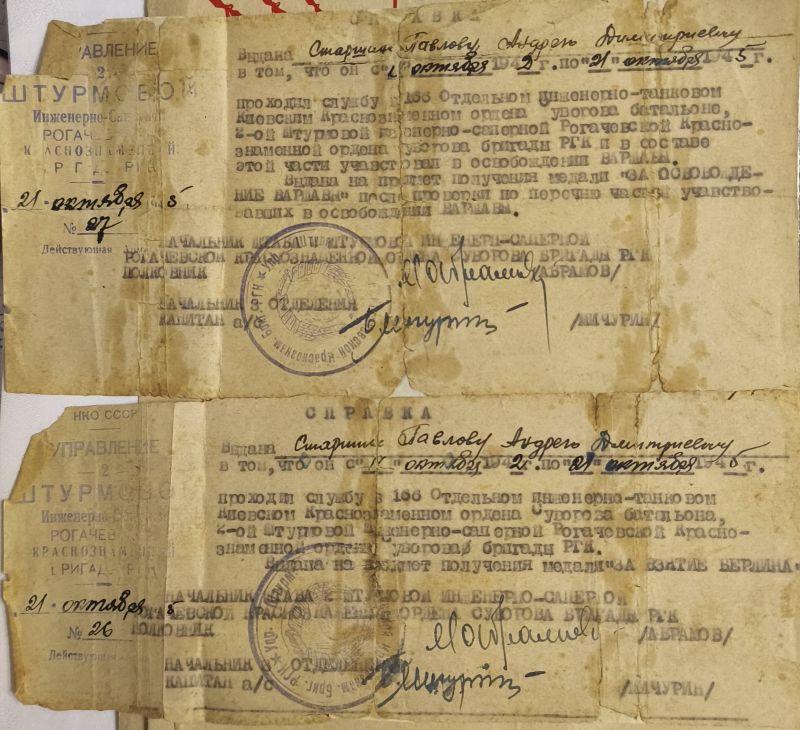 СПРАВКА
УПРАВЛЕНИЕ
2
ШТУРМОВОЙ
Инженерно-Сап
РОГАЧЕВ
КРАСНОЗНАМЕННОЙ
БРИГАД РГК
21 октября 5
№ 27
Действующая Арм
Выдана Старшине Павлову Андрею Дмитриевичу
в том, что он с " " октября 1942г. по "21" октября 1945г.
проходил службу в 166 Отдельном инженерно-танковом
Киевским Краснознаменном ордена Суворова батальоне,
2-ой Штурмовой инженерно-саперной Рогачевской Красно-
знаменной ордена Суворова бригады РГК и в составе
этой части учавствовал в освобождении ВАРШАВЫ.
Выдана на предмет получения медали "ЗА ОСВОБОЖДЕ-
НИЕ ВАРШАВЫ" после проверки по перечню частей учавство-
вавших в освобождении ВАРШАВЫ.
НАЧАЛЬНИК ШТАБА ШТУРМОВОЙ ИНЖЕНЕРН-САПЕРНОЙ
РОГАЧЕВСКОЙ КРАСНОЗНАМЕННОЙ ОРДЕНА СУВОРОВА БРИГАДЫ РГК
ПОЛКОВНИК /АБРАМОВ/
НАЧАЛЬНИК 3 ОТДЕЛЕНИЯ
КАПИТАН а/с /МИЧУРИН/
НКО СССР
УПРАВЛЕНИЕ
2
ШТУРМОВО
Инженерно-Са
РОГАЧЕВ
КРАСНОЗНАМЕННОЙ
БРИГАД РГК
21 октября 5
№ 26
Действующая
СПРАВКА
Выдана Старшине Павлову Андрею Дмитриевичу
в том, что он с "11" октября 1942г. по "21" октября 1945г.
проходил службу в 166 Отдельном инженерно-танковом
Киевском Краснознаменном ордена Суворова батальона,
2-ой Штурмовой Инженерно-саперной Рогачевской Красно-
знаменной ордена Суворова бригады РГК.
Выдана на предмет получения медали "ЗА ВЗЯТИЕ БЕРЛИНА"
НАЧАЛЬНИК ШТАБА 2 ШТУРМОВОЙ ИНЖЕНЕРНО-САПЕРНОЙ
РОГАЧЕВСКОЙ КРАСНОЗНАМЕННОЙ ОРДЕНА СУВОРОВА БРИГАДЫ РГК
ПОЛКОВНИК /АБРАМОВ/
НАЧАЛЬНИК 3 ОТДЕЛЕНИЯ
КАПИТАН а/с /МИЧУРИН/